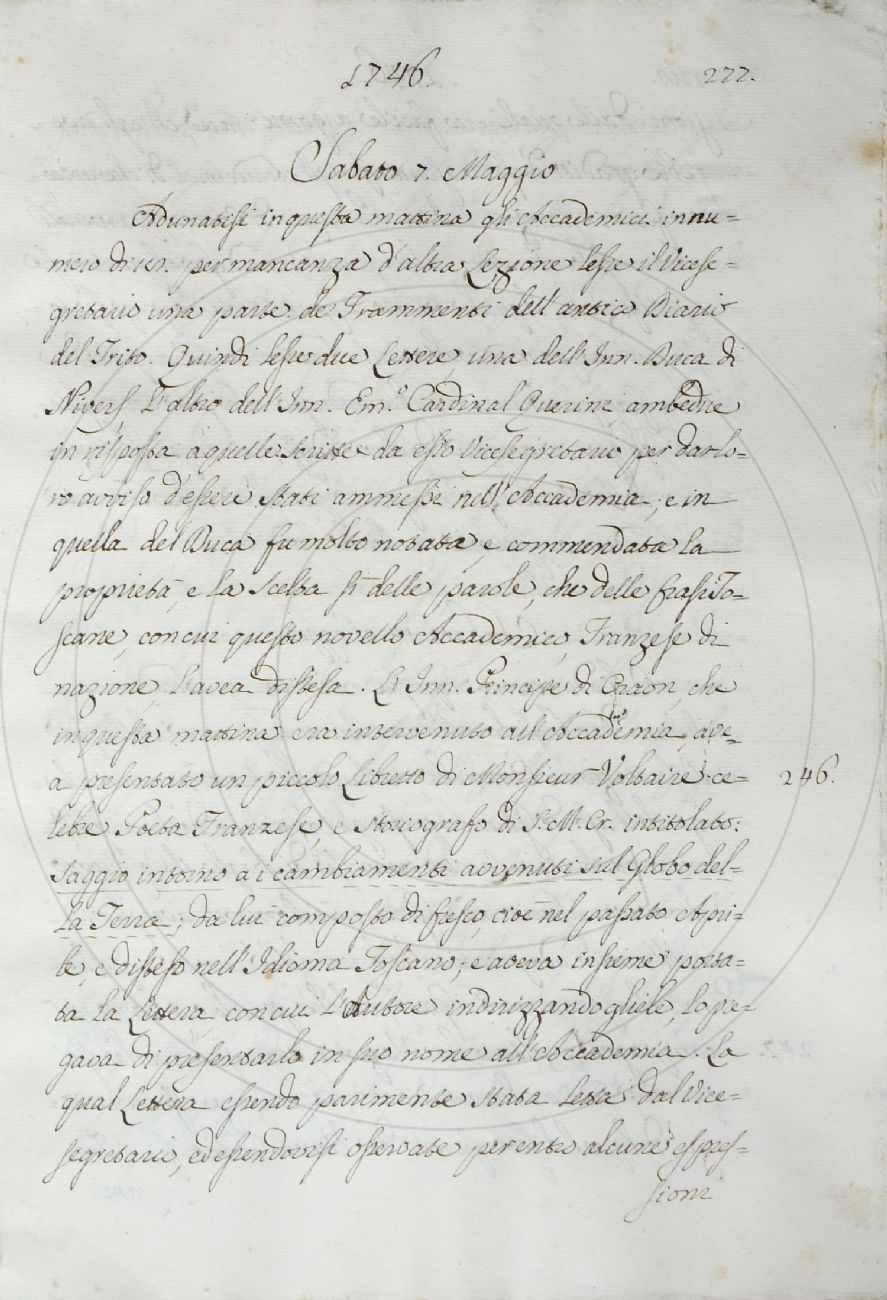 1746.
277.
Sabato 7. Maggio
Adunatisi in questa mattina gli Accademici in nu=
mero di per mancanza d'altra Lezione lesse il Vicese=
gretario una parte de Frammenti dell'antico Diario
del Trito. Quindi lesse due Lettere, una dell'Inn. Duca di
Nivers l'altro dell'Inn. Em.º Cardinal Querini ambedue
in risposta a quelle scritte da esso Vicesegretario per dar lo=
ro avviso d'essere stati ammessi nell'Accademia; e in
quella del Duca fu molto notata, e commendata la
proprietà, e la scelta sì delle parole, che delle frasi To=
scane, con cui questo novello Accademico, Franzese di
nazione, l'avea distesa. L'Inn. Principe di Craon, che
in questa mattina era intervenuto all'Accademia, ave=
a presentato un piccolo Libretto di Monsieur Voltaire ce=
246.
lebre Poeta Franzese, e Storiografo di S. M. Cr. intitolato:
Saggio intorno a i cambiamenti avvenuti sul Globo del=
la Terra; da lui composto di fresco, cioè nel passato Apri=
le, e disteso nell'Idioma Toscano; e aveva insieme porta=
ta la Lettera con cui l'Autore indirizzandogliele, lo pre=
gava di presentarlo in suo nome all'Accademia. La
qual Lettera essendo parimente stata letta dal Vice=
segretario, ed essendovisi osservate per entro alcune espres=
sioni